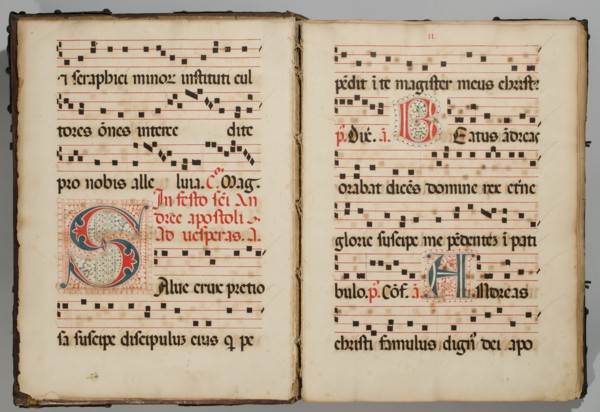 ⁊ seraphici minoꝝ instituti cul
tores õnes interce dite
pro nobis alle luia. Mag.
In festo sc̃i An
dree apostoli
Ad vesperas. a.
Salue crux pretio
sa suscipe discipulũ eius q̃ pe
II.
pẽdit ĩ te magister meus christꝰ
p̃. Dix̃. a. Beatus ãdreas
orabat dicẽs domine rex etẽne
glorie suscipe me pẽdentẽ ĩ pati
bulo. p̃. Cõf. a. Andreas
christi famulus dignꝰ dei apo